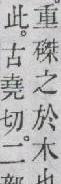 重磔之於木也
此。古堯切。二部